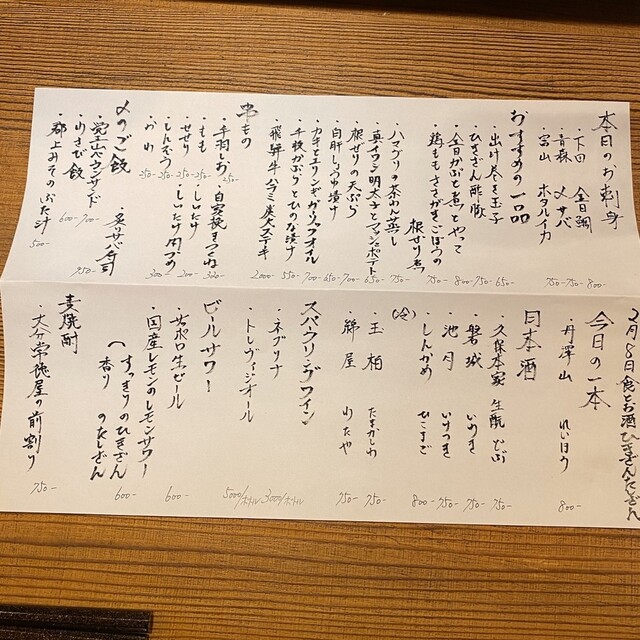 本日のお刺身
・下田 金目鯛 800-
・青森 〆サバ 750-
・富山 ホタルイカ 750-
おすすめの一品
・出汁巻き玉子 650-
・ひもざん酢豚 750-
・金目かぶと煮とやって 800-
・鶏ももささがきごぼうの根せり煮 750-
・ハマグリの茶わん蒸し 750-
・真イワシ明太子とマッシュポテト 650-
・根せりの天ぷら 700-
・白肝しょうゆ漬け 650-
・カキとエリンギガリバタオイル 700-
・千枚かぶらとひのな漬け 550-
・飛騨牛ハラミ炭火ステーキ 2000-
串もの
・手羽しお 250-
・もも 250-
・せせり 250-
・しんぞう 250-
・かわ 250-
・自家挽きつくね 320-
・しいたけ 200-
・しいたけ肉づめ 300-
〆のご飯
・炙りサバ寿司 750-
・覚王山ベーコンサンド 700-
・わさび飯 600-
・郡上みそのおた汁 500-
2月8日 食とお酒ひもざんたざん
今日の一本
・丹澤山 れいほう 800-
日本酒
・久保本家 生酛 どぶ 750-
・磐城 いわき 750-
・池月 いけつき 750-
・しんかめ ひこまご 800-
(冷)
・玉柏 たまかしわ 750-
・綿屋 わたや 750-
スパークリングワイン
・ネブリナ 3000/ボトル
・トレヴィジオール 5000/ボトル
ビールサワー
・サッポロ生ビール 600-
・国産レモンのレモンサワー 600-
(すっきりのひもざん
香りのたざん)
麦焼酎
・大分常徳屋の前割り 750-